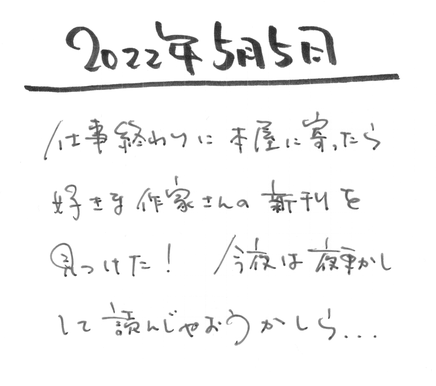 2022年5月5日
仕事終わりに本屋に寄ったら
好きな作家さんの新刊を
見つけた！ 今夜は夜更かし
して読んじゃおうかしら...